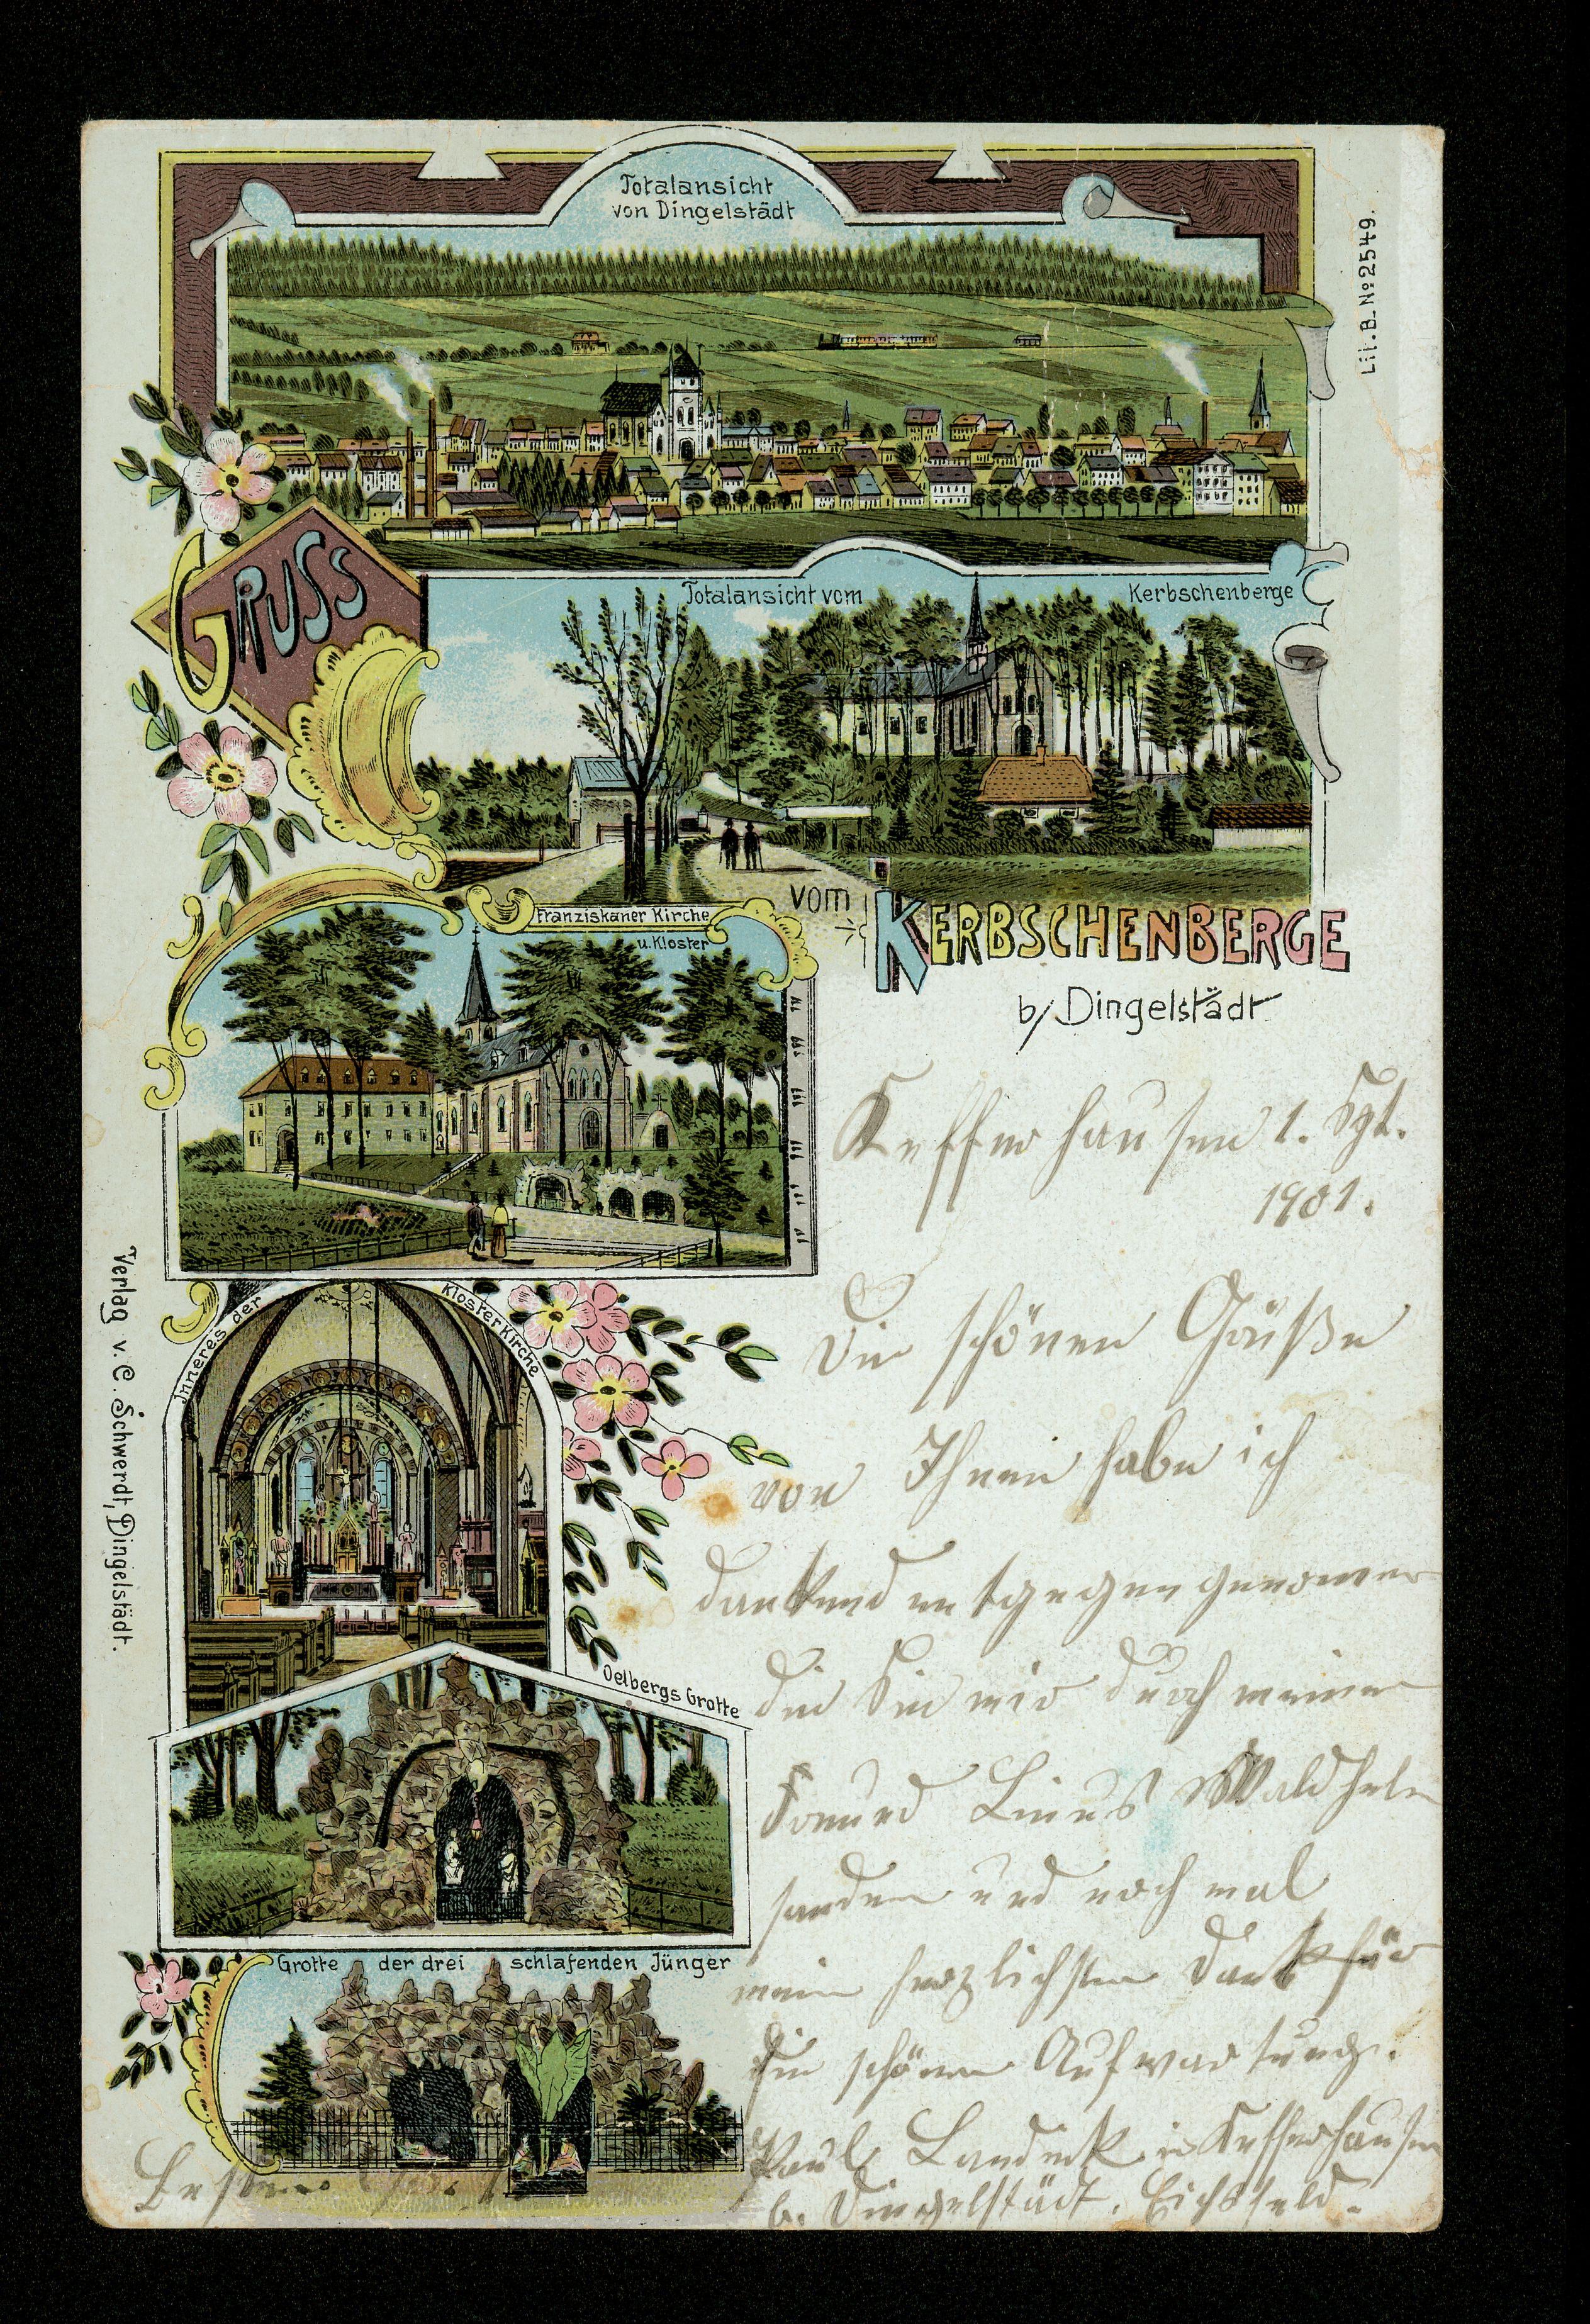 Totalansicht
von Dingelstädt
Lit. B. No 2549.
GRUSS
Totalansicht vom Kerbschenberge
vom
KERBSCHENBERGE
b/ Dingelstädt
Franziskaner Kirche
u. Kloster
Kefferhausen 1. Spt.
1901.
Inneres der Kloster Kirche
Verlag v. C. Schwerdt, Dingelstädt.
Die schönen Grüße
von Ihnen habe ich
dankend entgegen genomen
die Sie mir durch meinen
Freund Linus Waldhelm
sanden und noch mal
mein herzlichsten Dank für
die schöne Aufwartung.
Paul Landeck in Kefferhausen
b. Dingelstädt. Eichsfeld.
Oelbergs Grotte
Grotte der drei schlafenden Jünger
Besten